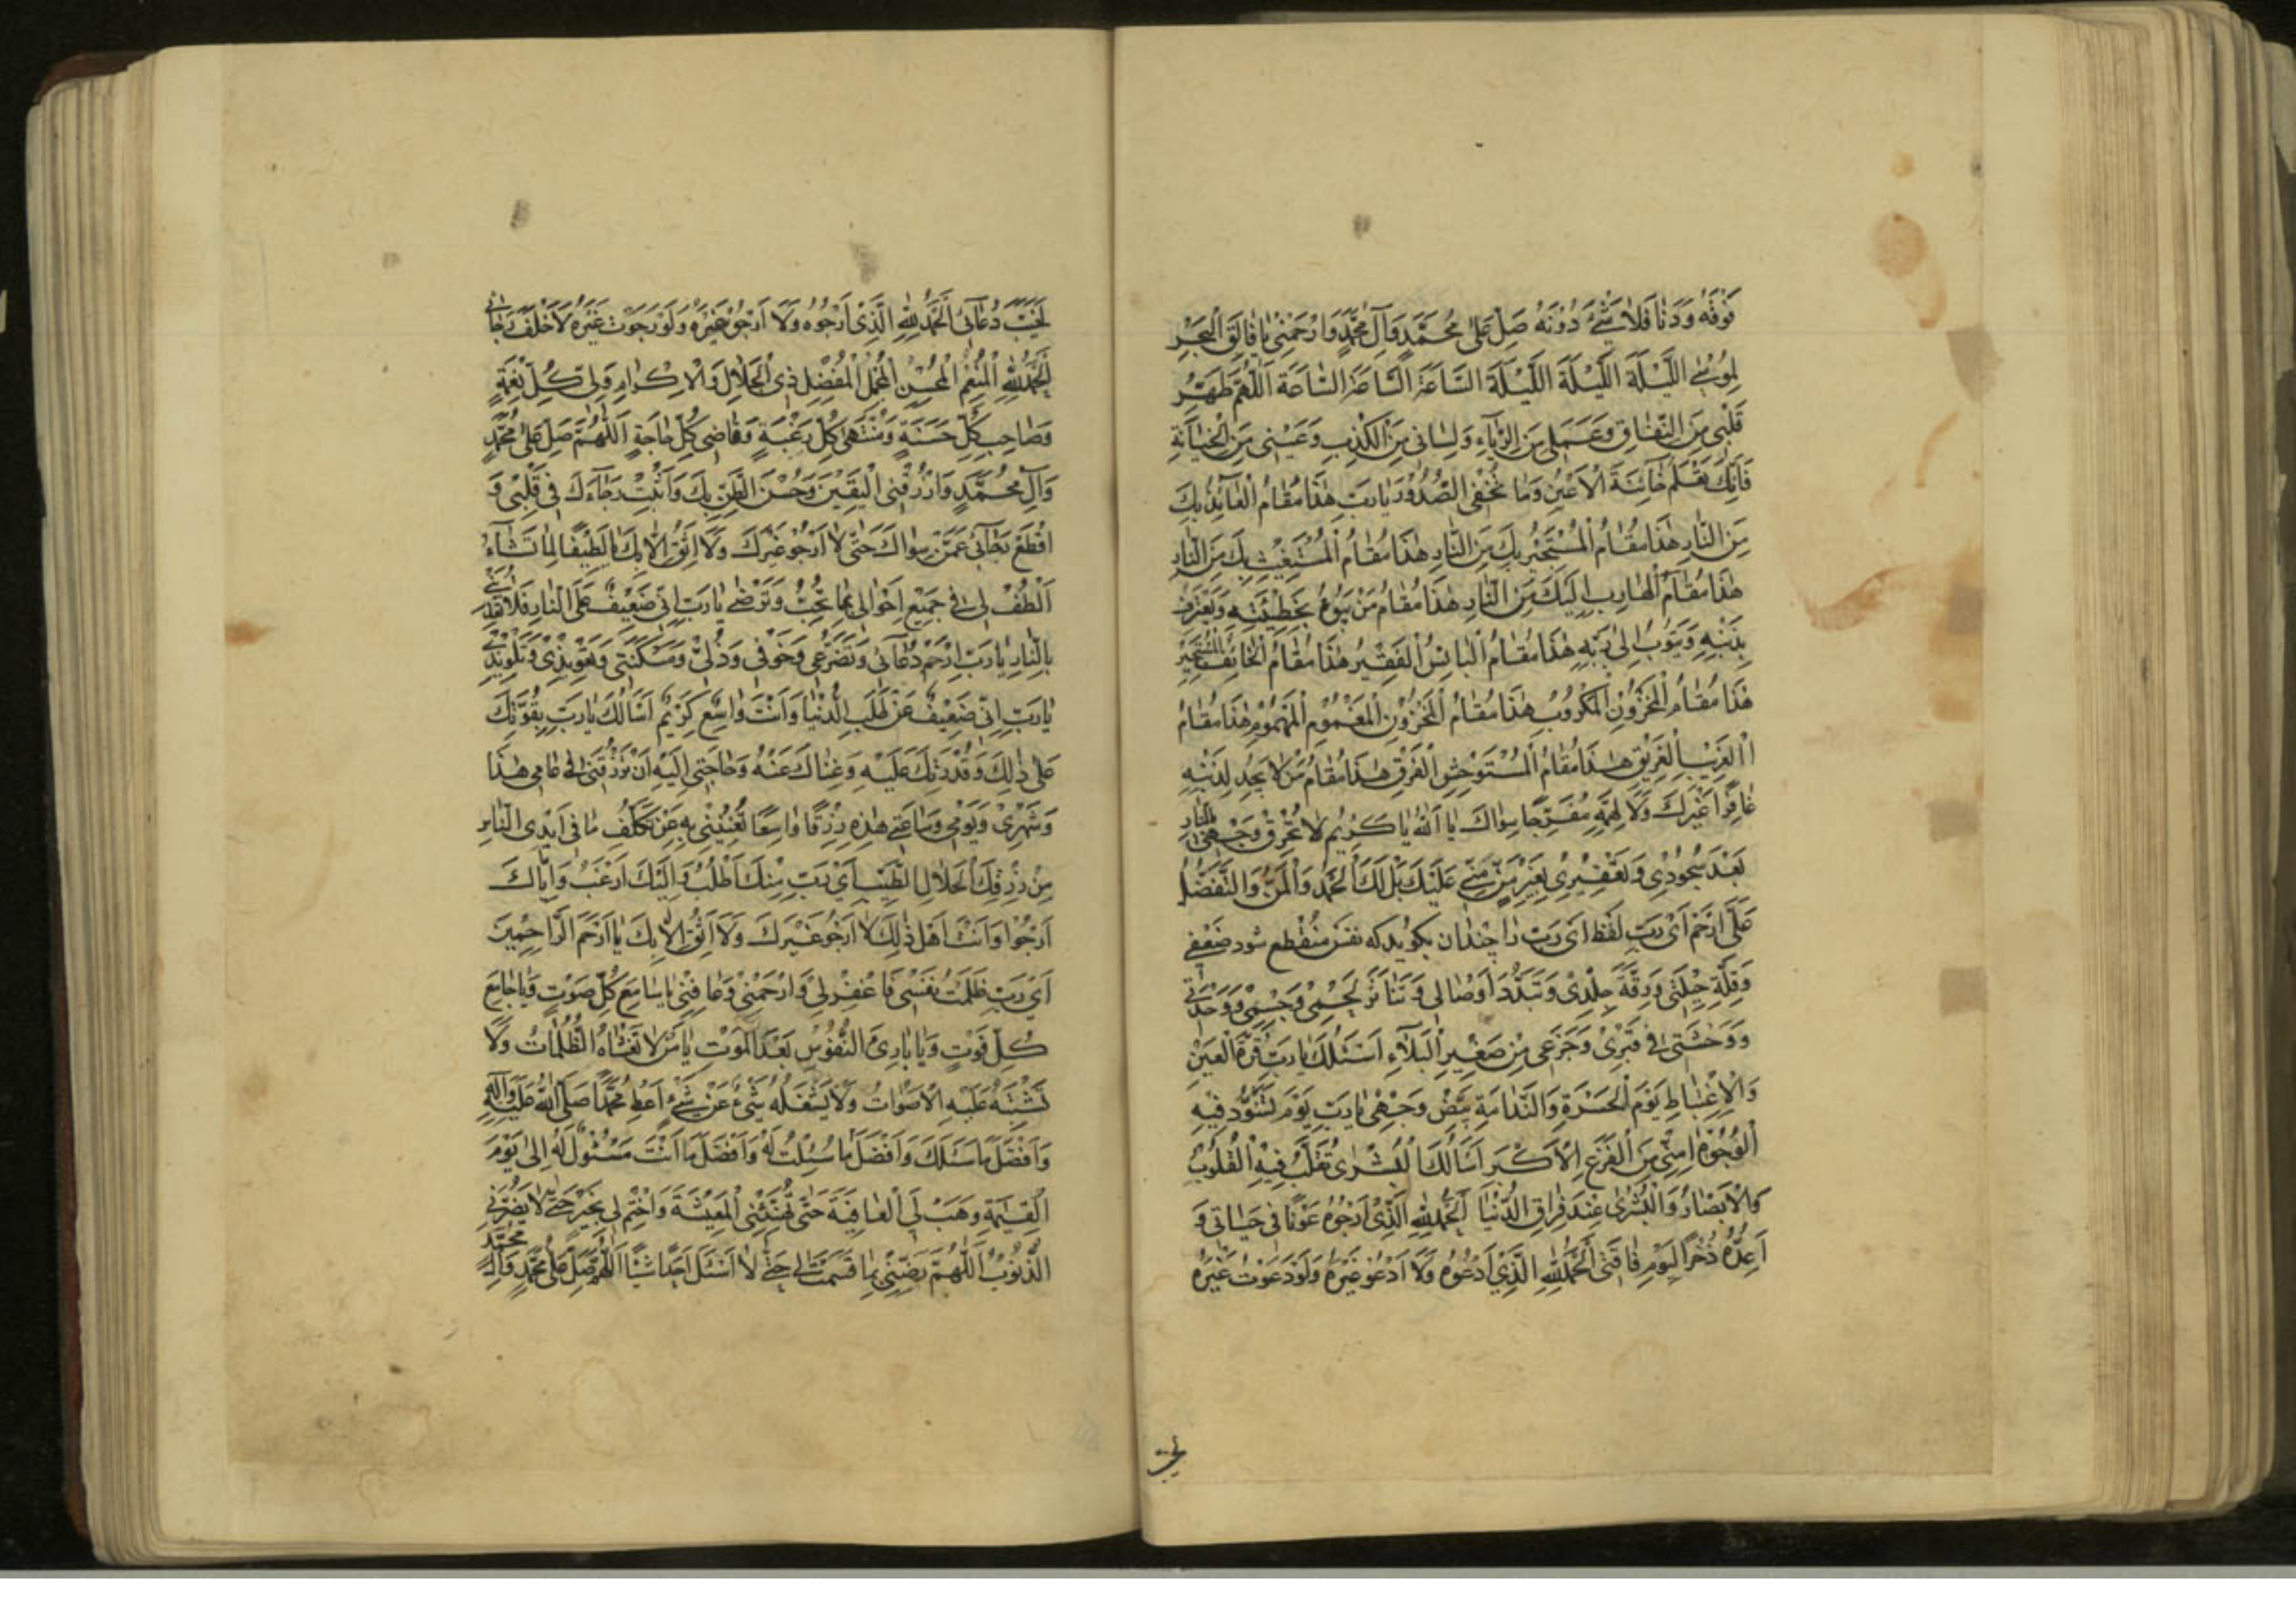 فَوْقَهُ وَدَنَا فَلَا شَيْءَ دُونَهُ صَلِّ عَلَى مُحَمَّدٍ وَآلِ مُحَمَّدٍ وَارْحَمْنِي يَا فَالِقَ الْبَحْرِ
لِمُوسَى اللَّيْلَةَ اللَّيْلَةَ اللَّيْلَةَ السَّاعَةَ السَّاعَةَ السَّاعَةَ اَللّٰهُمَّ طَهِّرْ
قَلْبِي مِنَ النِّفَاقِ وَعَمَلِي مِنَ الرِّيَاءِ وَلِسَانِي مِنَ الْكَذِبِ وَعَيْنِي مِنَ الْخِيَانَةِ
فَاِنَّكَ تَعْلَمُ خَائِنَةَ الْاَعْيُنِ وَمَا تُخْفِي الصُّدُورُ يَا رَبِّ هٰذَا مَقَامُ الْعَائِذِ بِكَ
مِنَ النَّارِ هٰذَا مَقَامُ الْمُسْتَجِيرِ بِكَ مِنَ النَّارِ هٰذَا مَقَامُ الْمُسْتَغِيثِ بِكَ مِنَ النَّارِ
هٰذَا مَقَامُ الْهَارِبِ اِلَيْكَ مِنَ النَّارِ هٰذَا مَقَامُ مَنْ يَبُوءُ بِخَطِيئَتِهِ وَيَعْتَرِفُ
بِذَنْبِهِ وَيَتُوبُ اِلَى رَبِّهِ هٰذَا مَقَامُ الْبَائِسِ الْفَقِيرِ هٰذَا مَقَامُ الْخَائِفِ الْمُسْتَجِيرِ
هٰذَا مَقَامُ الْمَحْزُونِ الْمَكْرُوبِ هٰذَا مَقَامُ الْمَحْزُونِ الْمَغْمُومِ الْمَهْمُومِ هٰذَا مَقَامُ
الْغَرِيبِ الْغَرِيقِ هٰذَا مَقَامُ الْمُسْتَوْحِشِ الْفَرِقِ هٰذَا مَقَامُ مَنْ لَا يَجِدُ لِذَنْبِهِ
غَافِرًا غَيْرَكَ وَلَا لِهَمِّهِ مُفَرِّجًا سِوَاكَ يَا اَللّٰهُ يَا كَرِيمُ لَا تُحْرِقْ وَجْهِي بِالنَّارِ
بَعْدَ سُجُودِي وَتَعْفِيرِي بِغَيْرِ مَنٍّ مِنِّي عَلَيْكَ بَلْ لَكَ الْحَمْدُ وَالْمَنُّ وَالتَّفَضُّلُ
عَلَيَّ ارْحَمْ اَيْ رَبِّ لفظ اَيْ رَبِّ را چندان بگوید که نفس منقطع شود ضَعْفِي
وَقِلَّةَ حِيلَتِي وَرِقَّةَ جِلْدِي وَتَبَدُّدَ اَوْصَالِي وَتَنَاثُرَ لَحْمِي وَجِسْمِي وَوَحْدَتِي
وَوَحْشَتِي فِي قَبْرِي وَجَزَعِي مِنْ صَغِيرِ الْبَلَاءِ اَسْئَلُكَ يَا رَبِّ قُرَّةَ الْعَيْنِ
وَالْاِغْتِبَاطَ يَوْمَ الْحَسْرَةِ وَالنَّدَامَةِ بَيِّضْ وَجْهِي يَا رَبِّ يَوْمَ تَسْوَدُّ فِيهِ
الْوُجُوهُ اٰمِنِّي مِنَ الْفَزَعِ الْاَكْبَرِ اَسْاَلُكَ الْبُشْرَى تُقَلَّبُ فِيهِ الْقُلُوبُ
وَالْاَبْصَارُ وَالْبُشْرَى عِنْدَ فِرَاقِ الدُّنْيَا اَلْحَمْدُ لِلّٰهِ الَّذِي اَرْجُوهُ عَوْنًا فِي حَيَاتِي وَ
اُعِدُّهُ ذُخْرًا لِيَوْمِ فَاقَتِي اَلْحَمْدُ لِلّٰهِ الَّذِي اَدْعُوهُ وَلَا اَدْعُو غَيْرَهُ وَلَوْ دَعَوْتُ غَيْرَهُ
لَخَيَّبَ
لَخَيَّبَ دُعَائِي اَلْحَمْدُ لِلّٰهِ الَّذِي اَرْجُوهُ وَلَا اَرْجُو غَيْرَهُ وَلَوْ رَجَوْتُ غَيْرَهُ لَاَخْلَفَ رَجَائِي
اَلْحَمْدُ لِلّٰهِ الْمُنْعِمِ الْمُحْسِنِ الْمُجْمِلِ الْمُفْضِلِ ذِي الْجَلَالِ وَالْاِكْرَامِ وَلِيِّ كُلِّ نِعْمَةٍ
وَصَاحِبِ كُلِّ حَسَنَةٍ وَمُنْتَهَى كُلِّ رَغْبَةٍ وَقَاضِي كُلِّ حَاجَةٍ اَللّٰهُمَّ صَلِّ عَلَى مُحَمَّدٍ
وَآلِ مُحَمَّدٍ وَارْزُقْنِي الْيَقِينَ وَحُسْنَ الظَّنِّ بِكَ وَاَثْبِتْ رَجَاءَكَ فِي قَلْبِي وَ
اقْطَعْ رَجَائِي عَمَّنْ سِوَاكَ حَتَّى لَا اَرْجُوَ غَيْرَكَ وَلَا اَثِقَ اِلَّا بِكَ يَا لَطِيفًا لِمَا تَشَاءُ
اُلْطُفْ لِي فِي جَمِيعِ اَحْوَالِي بِمَا تُحِبُّ وَتَرْضَى يَا رَبِّ اِنِّي ضَعِيفٌ عَلَى النَّارِ فَلَا تُعَذِّبْنِي
بِالنَّارِ يَا رَبِّ ارْحَمْ دُعَائِي وَتَضَرُّعِي وَخَوْفِي وَذُلِّي وَمَسْكَنَتِي وَتَعْوِيذِي وَتَلْوِيذِي
يَا رَبِّ اِنِّي ضَعِيفٌ عَنْ طَلَبِ الدُّنْيَا وَاَنْتَ وَاسِعٌ كَرِيمٌ اَسْاَلُكَ يَا رَبِّ بِقُوَّتِكَ
عَلَى ذٰلِكَ وَقُدْرَتِكَ عَلَيْهِ وَغِنَاكَ عَنْهُ وَحَاجَتِي اِلَيْهِ اَنْ تَرْزُقَنِي فِي عَامِي هٰذَا
وَشَهْرِي وَيَوْمِي وَسَاعَتِي هٰذِهِ رِزْقًا وَاسِعًا تُغْنِينِي بِهِ عَنْ تَكَلُّفِ مَا فِي اَيْدِي النَّاسِ
مِنْ رِزْقِكَ الْحَلَالِ الطَّيِّبِ اَيْ رَبِّ مِنْكَ اَطْلُبُ وَاِلَيْكَ اَرْغَبُ وَاِيَّاكَ
اَرْجُوا وَاَنْتَ اَهْلُ ذٰلِكَ لَا اَرْجُو غَيْرَكَ وَلَا اَثِقُ اِلَّا بِكَ يَا اَرْحَمَ الرَّاحِمِينَ
اَيْ رَبِّ ظَلَمْتُ نَفْسِي فَاغْفِرْ لِي وَارْحَمْنِي وَعَافِنِي يَا سَامِعَ كُلِّ صَوْتٍ وَيَا جَامِعَ
كُلِّ فَوْتٍ وَيَا بَارِئَ النُّفُوسِ بَعْدَ الْمَوْتِ يَا مَنْ لَا تَغْشَاهُ الظُّلُمَاتُ وَلَا
تَشْتَبِهُ عَلَيْهِ الْاَصْوَاتُ وَلَا يَشْغَلُهُ شَيْءٌ عَنْ شَيْءٍ اَعْطِ مُحَمَّدًا صَلَّى اللّٰهُ عَلَيْهِ وَآلِهِ
وَاَفْضَلَ مَا سَئَلَكَ وَاَفْضَلَ مَا سُئِلْتَ لَهُ وَاَفْضَلَ مَا اَنْتَ مَسْئُولٌ لَهُ اِلَى يَوْمِ
الْقِيٰمَةِ وَهَبْ لِيَ الْعَافِيَةَ حَتَّى تُهَنِّئَنِي الْمَعِيشَةَ وَاخْتِمْ لِي بِخَيْرٍ حَتَّى لَا يَضُرَّنِي
الذُّنُوبُ اَللّٰهُمَّ رَضِّنِي بِمَا قَسَمْتَ لِي حَتَّى لَا اَسْئَلَ اَحَدًا شَيْئًا اَللّٰهُمَّ صَلِّ عَلَى مُحَمَّدٍ وَآلِ مُحَمَّدٍ